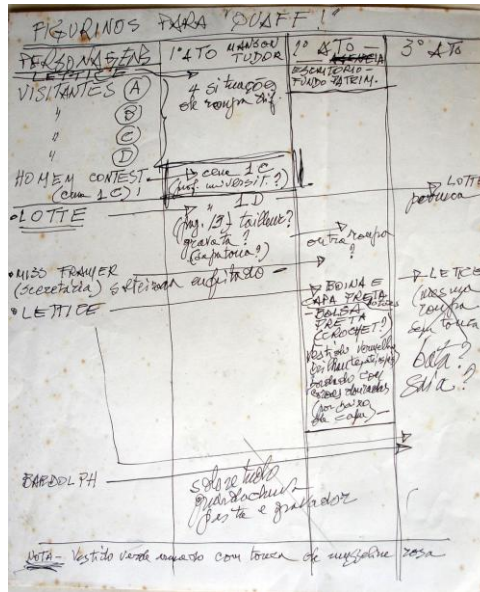 FIGURINOS PARA "QUAFF!"
PERSONAGENS
1º ATO MANSON TUDOR
2º ATO
ESCRITÓRIO - FUNDO PATRIM.
3º ATO
LETTICE
VISITANTES A
" B
" C
" D
4 situações
de roupa dif.
HOMEM CONTEST.
(cena 1C)!
cena 1C
(prof. universit.?)
• LOTTE
" 1.D
(pag. 13) tailleur?
gravata?
(sapatona?)
outra roupa
?
LOTTE
peruca
• MISS FRAMER
(secretária) solteirona enfeitada -
• LETTICE
BOINA E
CAPA PRETA
- BOLSA
PRETA
(CROCHET?)
vestido vermelho
bordado com
coroas douradas
(por baixo
da capa) -
LETICE
(mesma
roupa
sem touca
bata?
saia?
BARDOLPH
sobretudo
guardachuva
pasta e gravador
NOTA - Vestido verde com touca de musseline rosa